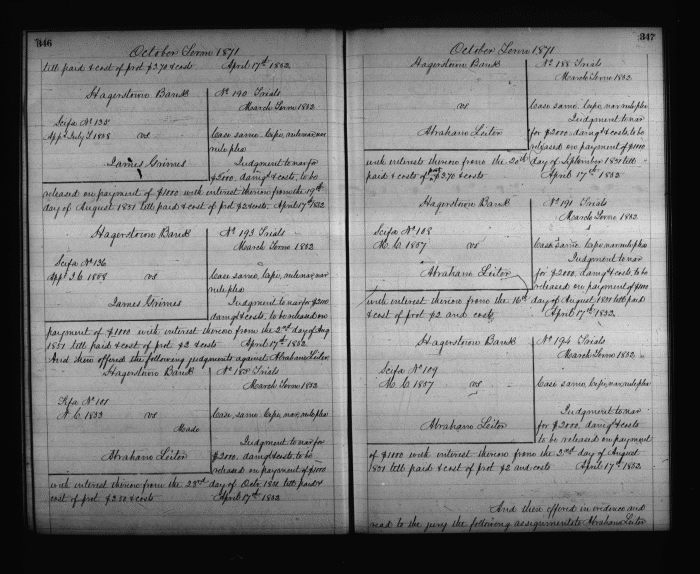 346
October Term 1871
till paid & cost of prot $2.70 & costs April 17th 1832
Hagerstown Bank No 190 Trials
March Term 1832
Scifa No 135
Appr July T 1828 vs Case same. Capi, nar
nule plea
James Grimes Judgment to nar for
$2000. damgs & costs, to be
released on payment of $1000 with interest thereon from the 19th
day of August 1831 till paid & cost of prot $2 & costs. April 17th 1832
Hagerstown Bank No 193 Trials
March Term 1832
Scifa No 136
Appr 1828 vs Case same, Capi, nar
nule plea
James Grimes Judgment to nar for $2000
damgs & costs, to be released on
payment of $1000 with interest thereon from the 2nd day of Aug
1831 till paid & cost of prot $2 & costs April 17th 1832
And then offered the following judgments against Abraham Leiter
Hagerstown Bank Trials
March Term 1832
Fifa No 101
N. C. 1833 vs Case, same, Capi, nar, nule plea
Made
Judgment to nar for
Abraham Leiter $2000. damgs & costs, to be
released on payment of $1000
with interest thereon from the 23rd day of Octr 1831 till paid &
cost of prot & costs April 17th 1832
347
October Term 1871
Hagerstown Bank No 188 Trials
March Term 1832
vs Case same, Capi, nar, nule plea
Judgment to nar
Abraham Leiter for $2000. damgs & costs, to be
released on payment of $1000
with interest thereon from the 20th day of September 1831 till
paid & costs of prot $2.70 & costs April 17th 1832
Hagerstown Bank No 191 Trials
March Term 1832
Scifa No 108
M. C. 1857 vs Case same, Capi, nar nule plea
Judgment to nar
Abraham Leiter for $2000, damgs & costs, to be
released on payment of $1000
with interest thereon from the 16th day of August 1831 till paid
& cost of prot $2 and costs April 17th 1832.
Hagerstown Bank No 194 Trials
March Term 1832
Scifa No 109
M. C. 1857 vs Case same, Capi, nar, nule plea
Judgment to nar
Abraham Leiter for $2000. damgs & costs
to be released on payment
of $1000 with interest thereon from the 2nd day of August
1831 till paid & cost of prot $2 and costs April 17th 1832
And then offered in evidence and
read to the jury the following assignments to Abraham Leiter